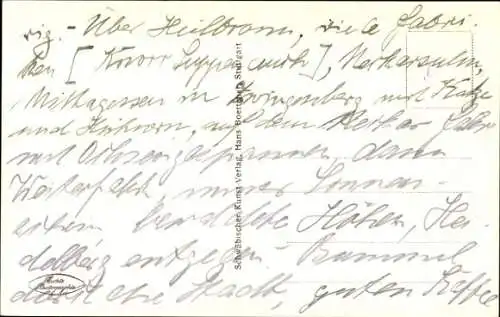 rig. - Über Heilbronn, viele Fabri-
ken [Knorr Suppen auch], Neckarsulm,
Mittagessen in Zwingenberg mit Katze
und Hühnern, auf dem Neckar Fähre
mit Ochsengespannen, dann
Weiterfahrt, immer Sonnen-
schein bewaldete Höhen, Hei-
delberg entgegen. Bummel
durch die Stadt, guten Kaffee
Schwäbischer Kunst-Verlag, Hans Boettcher, Stuttgart
Echte Photographie